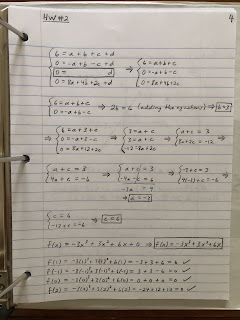 HW #2
4
6 = a + b + c + d
0 = -a + b - c + d
0 = d
0 = 8a + 4b + 2c + d
⇒ 6 = a + b + c
0 = -a + b - c
0 = 8a + 4b + 2c
6 = a + b + c
0 = -a + b - c
⇒ 2b = 6 (adding the equations) ⇒ b = 3
⇒ 6 = a + 3 + c
0 = -a + 3 - c
0 = 8a + 12 + 2c
⇒ 3 = a + c
3 = a + c
-12 = 8a + 2c
⇒ a + c = 3
8a + 2c = -12
⇒ a + c = 3
4a + c = -6
⇒ a + c = 3
-4a - c = 6
-3a = 9
⇒ a = -3
⇒ -3 + c = 3
4(-3) + c = -6
c = 6
-12 + c = -6
⇒ c = 6
f(x) = -3x³ + 3x² + 6x + 0 ⇒ f(x) = -3x³ + 3x² + 6x
f(1) = -3(1)³ + 3(1)² + 6(1) = -3 + 3 + 6 = 6 ✓
f(-1) = -3(-1)³ + 3(-1)² + 6(-1) = 3 + 3 - 6 = 0 ✓
f(0) = -3(0)³ + 3(0)² + 6(0) = 0 + 0 + 0 = 0 ✓
f(2) = -3(2)³ + 3(2)² + 6(2) = -24 + 12 + 12 = 0 ✓